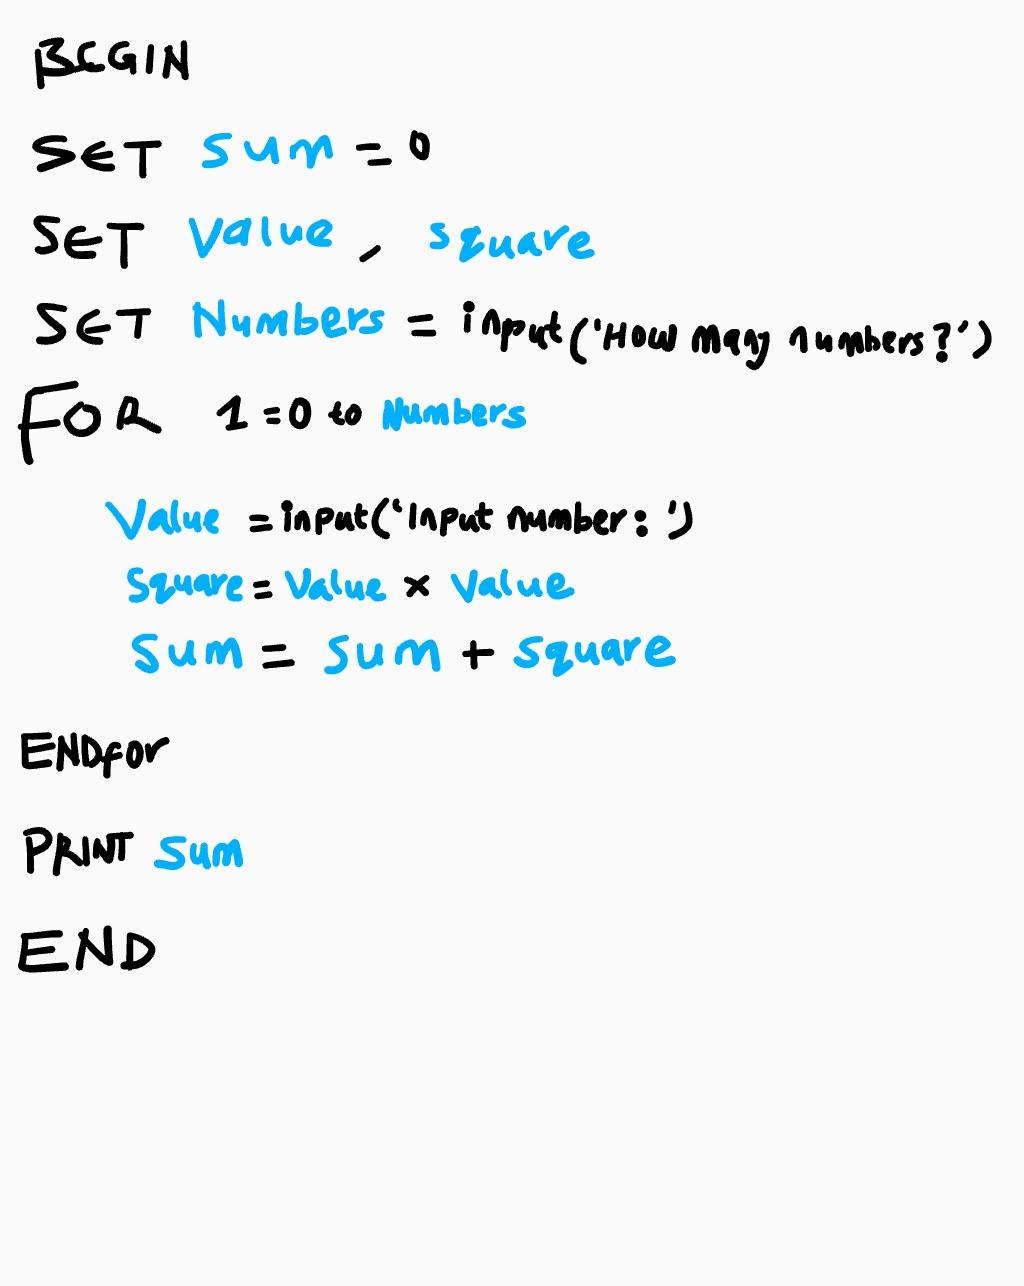 BEGIN
SET sum = 0
SET Value, square
SET Numbers = input('How many numbers?')
FOR 1 = 0 to Numbers
Value = input('Input number: ')
Square = Value × Value
Sum = Sum + Square
ENDfor
PRINT Sum
END